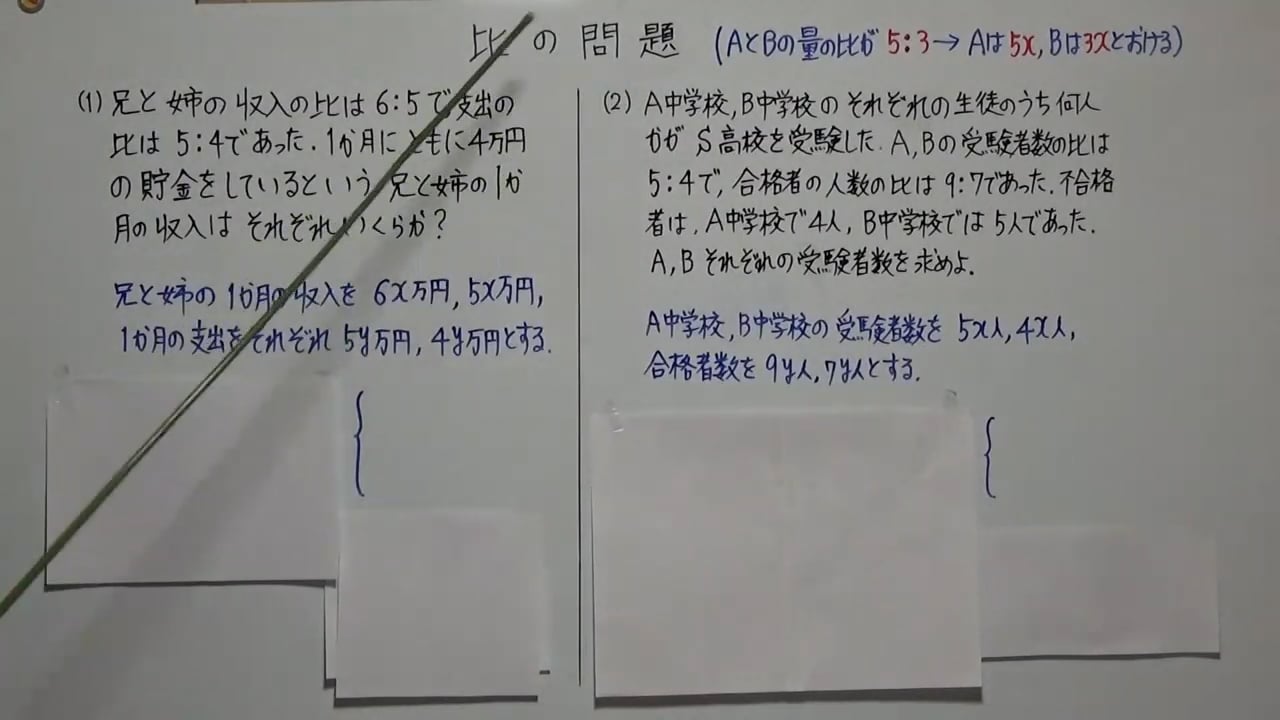 比の問題 (AとBの量の比が 5:3→ Aは5x, Bは3xとおける)
(1) 兄と姉の収入の比は6:5で支出の
比は5:4であった. 1か月にともに4万円
の貯金をしているという. 兄と姉の1か
月の収入はそれぞれいくらか?
兄と姉の1か月の収入を 6x万円, 5x万円,
1か月の支出をそれぞれ 5y万円, 4y万円とする.
(2) A中学校, B中学校のそれぞれの生徒のうち何人
かが S高校を受験した. A, Bの受験者数の比は
5:4で, 合格者の人数の比は9:7であった. 不合格
者は, A中学校で4人, B中学校では5人であった.
A, B それぞれの受験者数を求めよ.
A中学校, B中学校の受験者数を 5x人, 4x人,
合格者数を 9y人, 7y人とする.